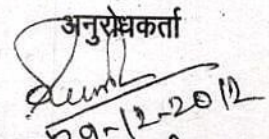 अनुरोधकर्ता
29-12-2012